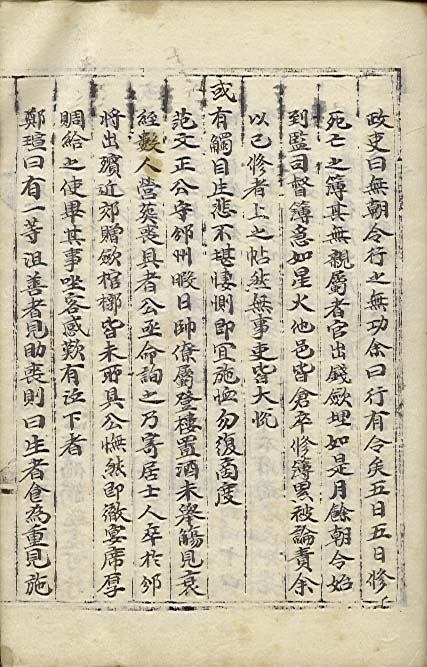 政吏曰無朝令行之無功余曰行有令矣五日五日修
死亡之簿其無親屬者官出錢歛埋如是月餘朝令始
到監司督簿急如星火他邑皆倉卒修簿累被論責余
以已修者上之帖然無事吏皆大悅
或有觸目生悲不堪悽惻即宜施恤勿復商度
范文正公守邠州暇日帥僚屬登樓置酒未擧觴見衰
絰數人營葬喪具者公亟命詢之乃寄居士人卒於邠
將出殯近郊贈歛棺槨皆未所具公憮然即徹宴席厚
賙給之使畢其事坐客感歎有泣下者
鄭瑄曰有一等沮善者見助喪則曰生者食為重見施